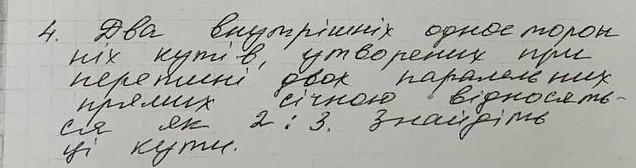 4. Два внутрішніх односторон
ніх кутів, утворених при
перетині двох паралельних
прямих січною відносять-
ся як 2 : 3. Знайдіть
ці кути.